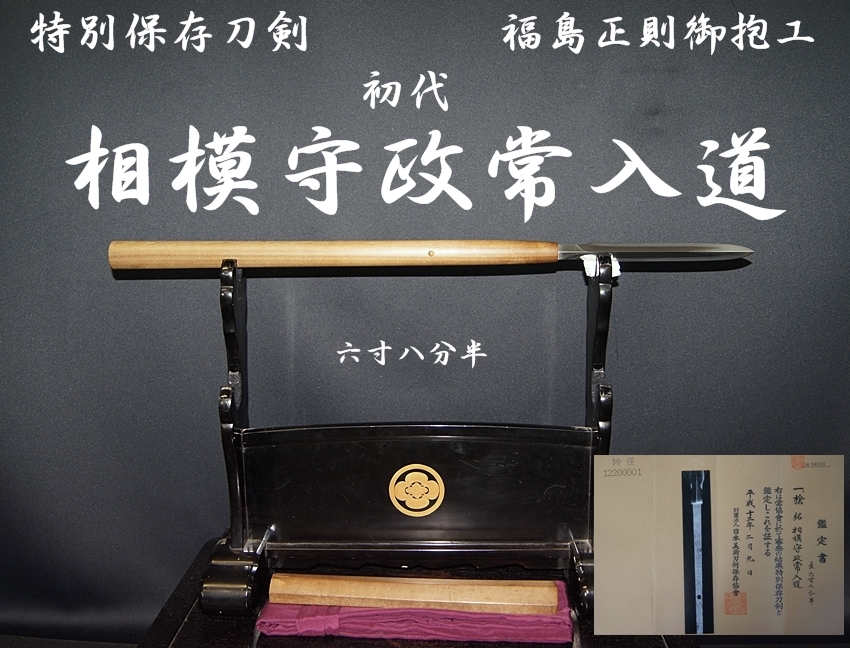 特別保存刀剣
福島正則御抱工
初代
相模守政常入道
六寸八分半
特保
12200001
鑑定書
一、槍 銘 相模守政常入道
長 六寸八分半
右は當協會に於て審査の結果特別保存刀剣と
鑑定しこれを証する
平成十三年二月九日
財團法人 日本美術刀剣保存協會